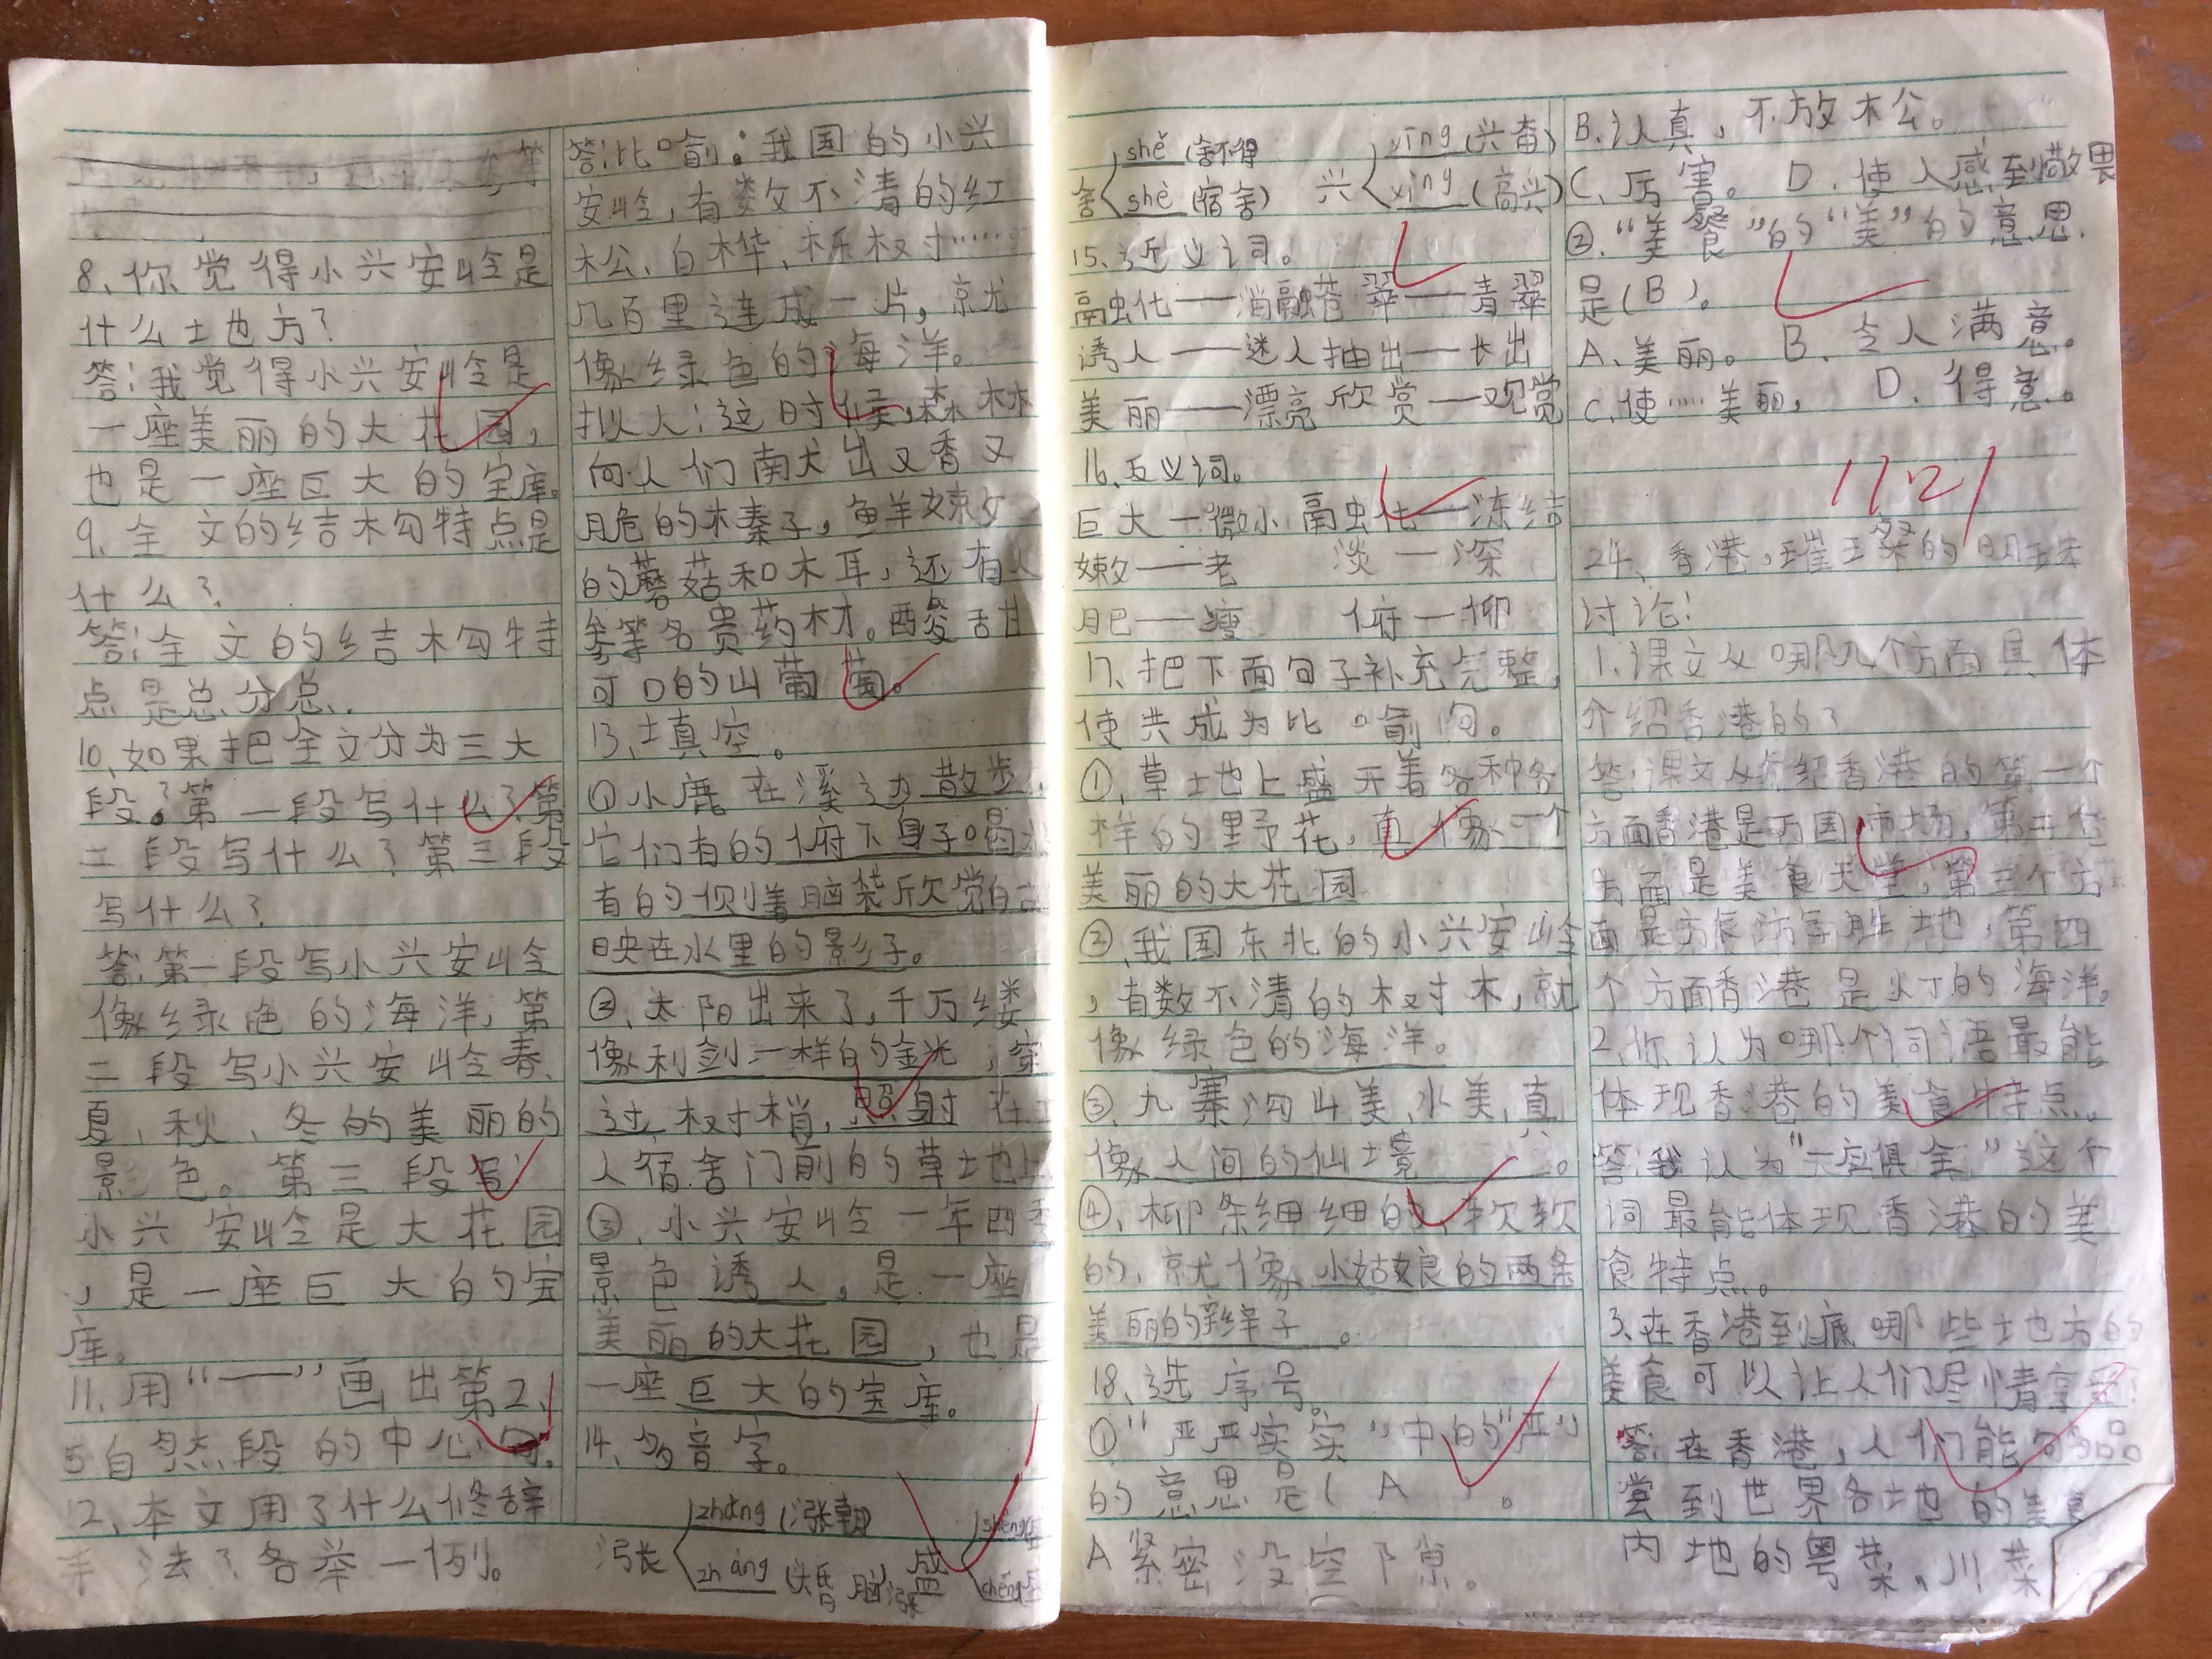 8、你觉得小兴安岭是
什么土地方?
答:我觉得小兴安岭是
一座美丽的大花园,
也是一座巨大的宝库。
9、全文的结构特点是
什么?
答:全文的结构特
点是总分总.
10、如果把全文分为三大
段。第一段写什么?第
二段写什么?第三段
写什么?
答:第一段写小兴安岭
像绿色的海洋,第
二段写小兴安岭春、
夏、秋、冬的美丽的
景色。第三段写
小兴安岭是大花园
,是一座巨大的宝
库。
11、用“——”画出第2、
5自然段的中心句.
12、本文用了什么修辞
手法?各举一例。
答:比喻:我国的小兴
安岭,有数不清的红
松、白桦、栎树……
几百里连成一片,就
像绿色的海洋。
拟人:这时候,森林
向人们献出又香又
脆的榛子,鲜嫩
的蘑菇和木耳,还有人
参等名贵药材。酸甜
可口的山葡萄。
13、填空。
①小鹿在溪边散步,
它们有的俯下身子喝水
有的侧着脑袋欣赏自己
映在水里的影子。
②、太阳出来了,千万缕
像利剑一样的金光,穿
过树梢,照射在工
人宿舍门前的草地上
③、小兴安岭一年四季
景色诱人,是一座
美丽的大花园,也是
一座巨大的宝库。
14、多音字。
涨 zhǎng(涨潮) 盛 shèng
zhàng(头昏脑涨) chéng
舍 shě(舍不得 兴 xīng(兴奋)
shè(宿舍) xìng(高兴)
15、近义词。
融化——消融 苍翠——青翠
诱人——迷人 抽出——长出
美丽——漂亮 欣赏—观赏
16、反义词。
巨大—微小 融化—冻结
嫩——老 淡—深
肥——瘦 俯—仰
17、把下面句子补充完整,
使其成为比喻句。
①、草地上盛开着各种各
样的野花,真像一个
美丽的大花园
②、我国东北的小兴安岭
,有数不清的树木,就
像绿色的海洋。
③、九寨沟山美、水美,真
像人间的仙境。
④、柳条细细的,软软
的,就像小姑娘的两条
美丽的辫子。
18、选序号。
①“严严实实”中的“严”
的意思是(A)。
A紧密没空隙。
B、认真,不放松。
C、厉害。 D、使人感到敬畏
②、“美餐”的“美”的意思
是(B)。
A、美丽。 B、令人满意。
C、使……美丽, D、得意。
11 21
24、香港,璀璨的明珠
讨论:
1、课文从哪几个方面具体
介绍香港的?
答:课文从介绍香港的第一个
方面香港是万国市场,第二个
方面是美食天堂,第三个方
面是旅游胜地,第四
个方面香港是灯的海洋。
2、你认为哪个词语最能
体现香港的美食特点。
答:我认为“一应俱全”这个
词最能体现香港的美
食特点。
3、在香港到底哪些地方的
美食可以让人们尽情享受?
答:在香港,人们能够品
尝到世界各地的美食
内地的粤菜、川菜